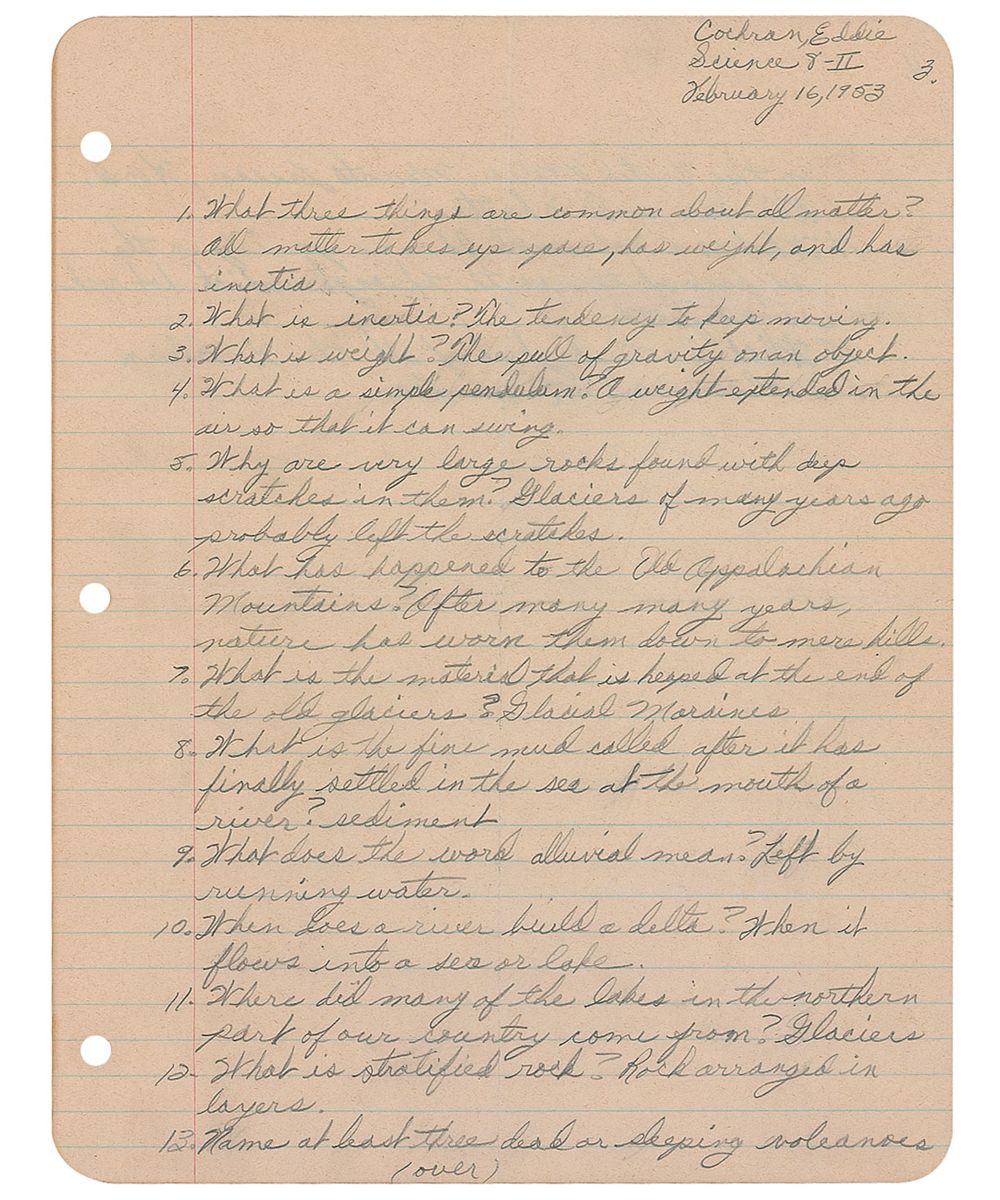 Cochran, Eddie
Science 8-II
3.
February 16, 1953
1. What three things are common about all matter?
All matter takes up space, has weight, and has
inertia
2. What is inertia? The tendency to keep moving.
3. What is weight? The pull of gravity on an object.
4. What is a simple pendulum? A weight extended in the
air so that it can swing.
5. Why are very large rocks found with deep
scratches in them? Glaciers of many years ago
probably left the scratches.
6. What has happened to the Old Appalachian
Mountains? After many many years,
nature has worn them down to mere hills.
7. What is the material that is heaped at the end of
the old glaciers? Glacial Moraines
8. What is the fine mud called after it has
finally settled in the sea at the mouth of a
river? sediment
9. What does the word alluvial mean? Left by
running water.
10. When does a river build a delta? When it
flows into a sea or lake.
11. Where did many of the lakes in the northern
part of our country come from? Glaciers
12. What is stratified rock? Rock arranged in
layers.
13. Name at least three dead or sleeping volcanoes
(over)